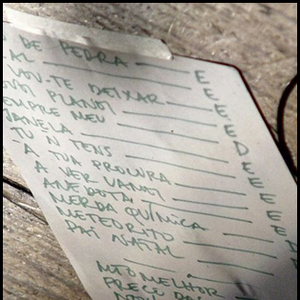 DE PEDRA E
AL E
VAN-TE DEIXAR E
PLANO E
EMPRE MEU D
JANELA E
TU N TENS E
A TUA PROCURA E
A VER VAMOS E
ANEDOTA E
MERDA QUÍMICA E
METEORITO
PAI NATAL
MTO MELHOR
PREÇO